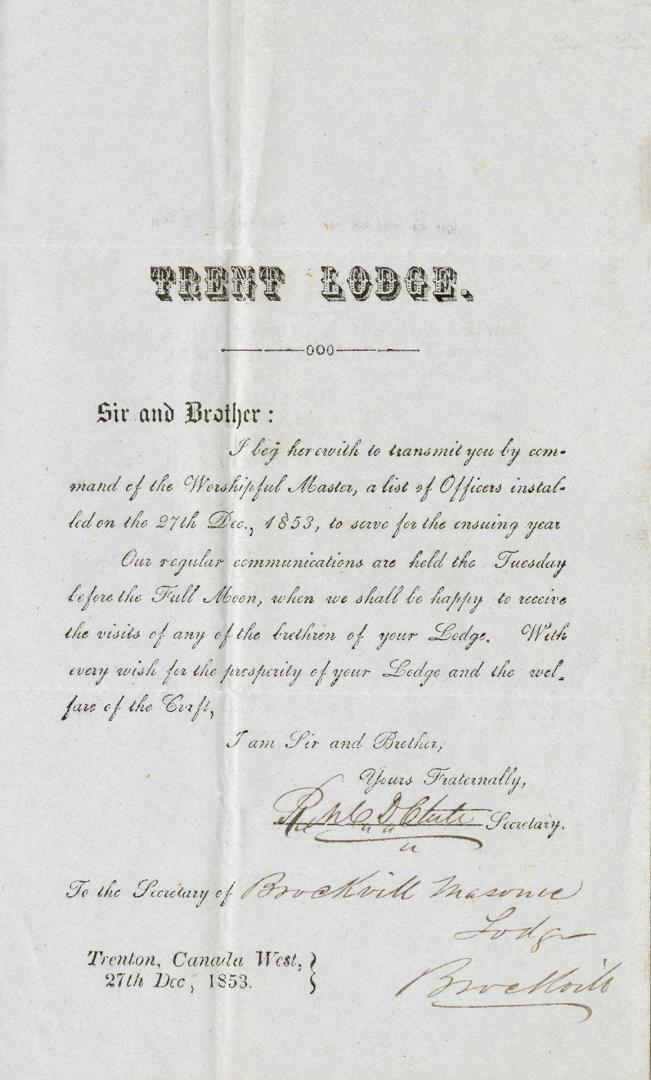 TRENT LODGE.
Sir and Brother:
I beg herewith to transmit you by com-
mand of the Worshipful Master, a list of Officers instal-
led on the 27th Dec., 1853, to serve for the ensuing year
Our regular communications are held the Tuesday
before the Full Moon, when we shall be happy to receive
the visits of any of the brethren of your Lodge. With
every wish for the prosperity of your Lodge and the wel-
fare of the Craft,
I am Sir and Brother,
Yours Fraternally,
Clute Secretary.
To the Secretary of Brockvill Masonic
Lodge
Brockvill
Trenton, Canada West,
27th Dec, 1853.